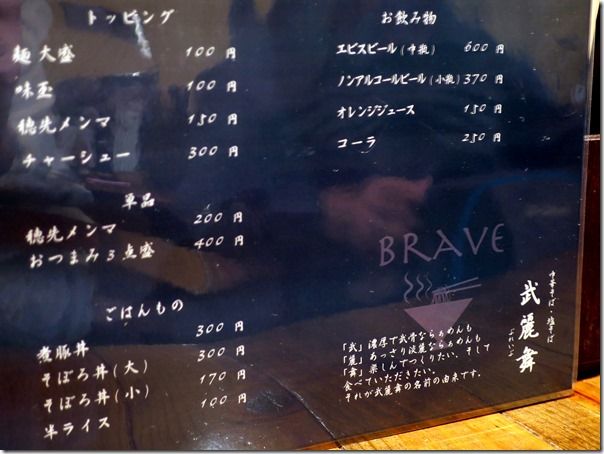 トッピング
麺 大盛 100 円
味玉 100 円
穂先メンマ 150 円
チャーシュー 300 円
単品
穂先メンマ 200 円
おつまみ3点盛 400 円
ごはんもの
煮豚丼 300 円
そぼろ丼(大) 300 円
そぼろ丼(小) 170 円
半ライス 100 円
お飲み物
エビスビール(中瓶) 600 円
ノンアルコールビール(小瓶) 370 円
オレンジジュース 150 円
コーラ 250 円
BRAVE
中華そば、塩そば
武麗舞
ぶれいぶ
「武」濃厚で武骨ならぁめんも
「麗」あっさり淡麗ならぁめんも
「舞」楽しんでつくりたい、そして
食べていただきたい。
それが武麗舞の名前の由来です。